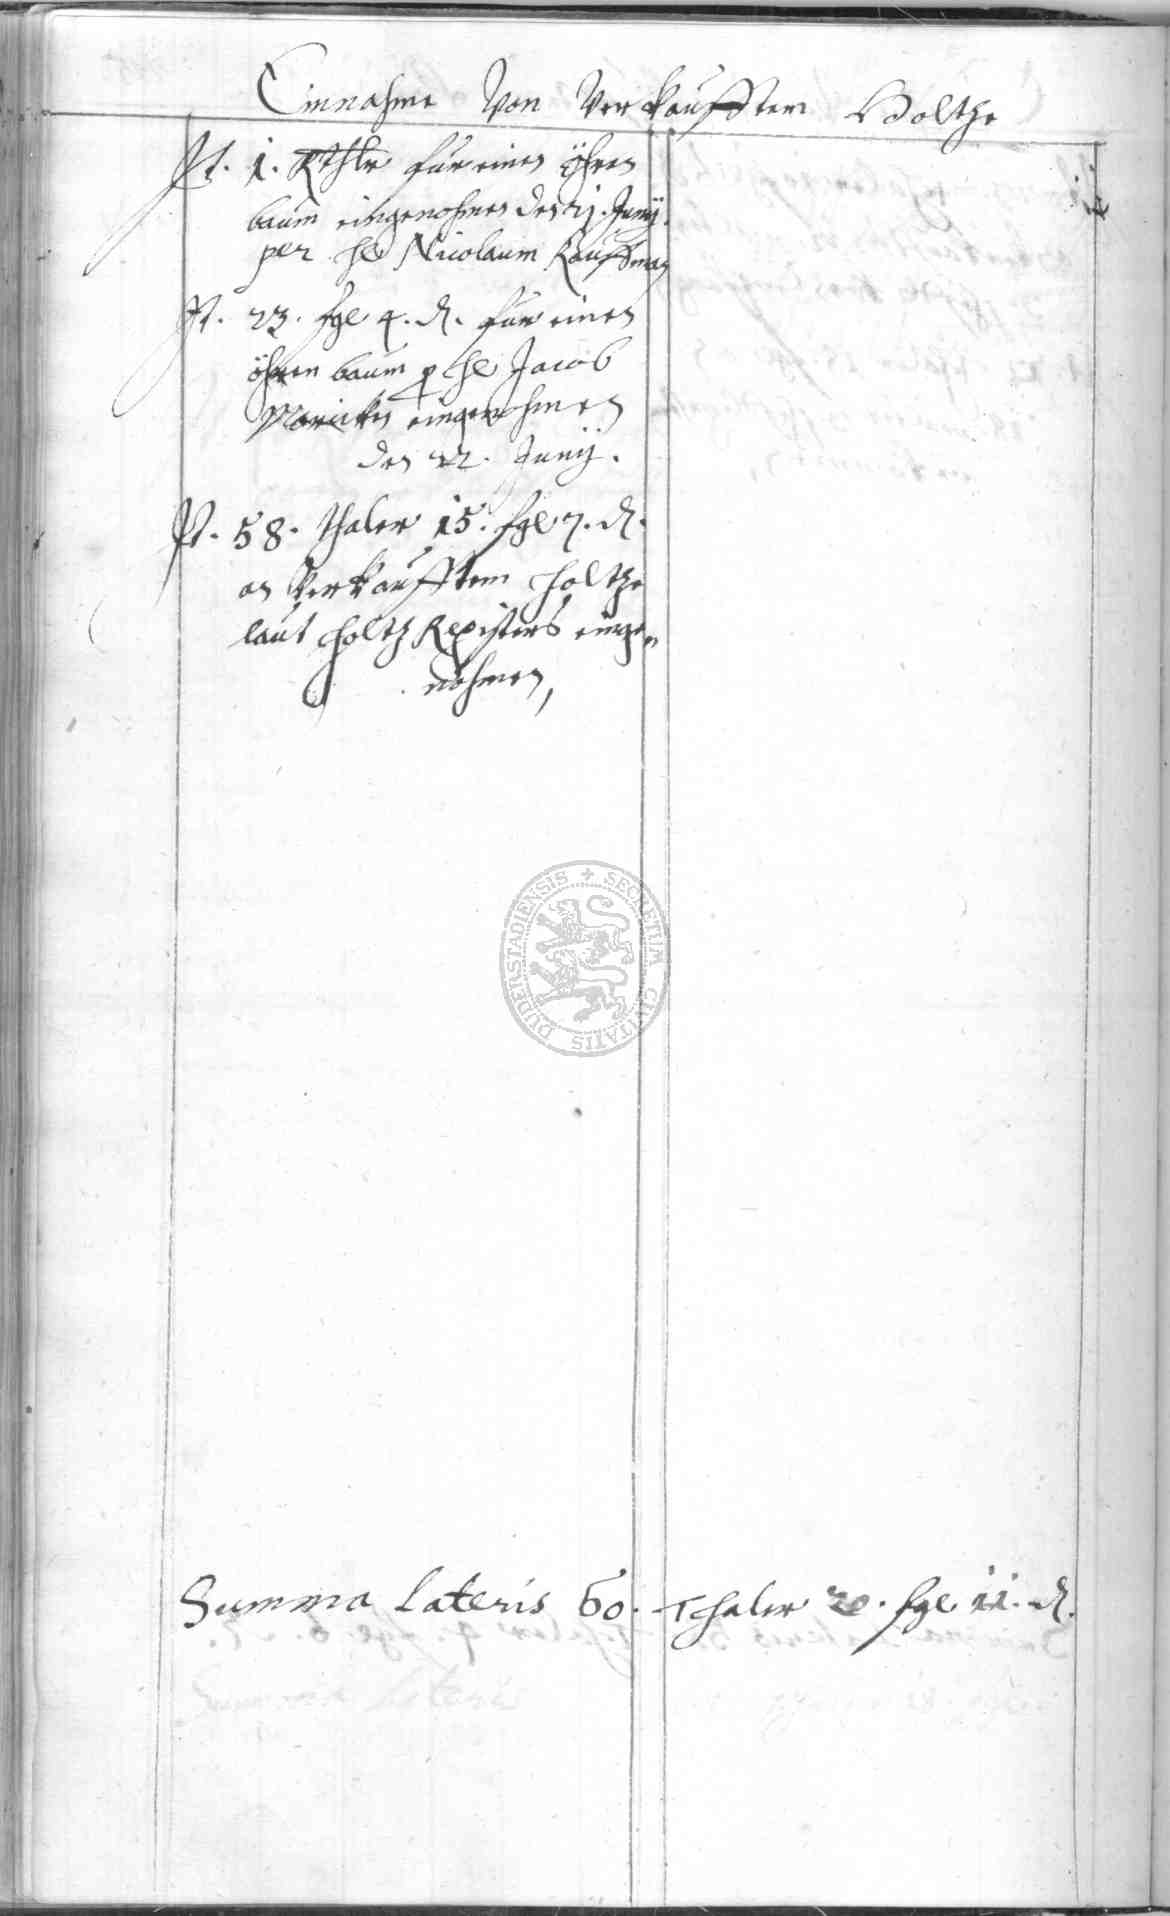 Einnahme Von Verkaufftem Holtze
It. 1. Rthlr fur einen öhren
baum eingenohmen den 21. Junij.
per he Nicolaum Kauffman
It. 23. sgl 4. d. fur einen
öhren baum p he Jacob
eingenohmen
den 22. Junij.
It. 58. thaler 15. sgl 7. d.
an verkaufftem holtze
laut holtz Registers einge
nohmen,
DUDERSTADIENSIS + SECRETUM CIVITATIS
Summa Lateris 60. Thaler 20. sgl 11. d.